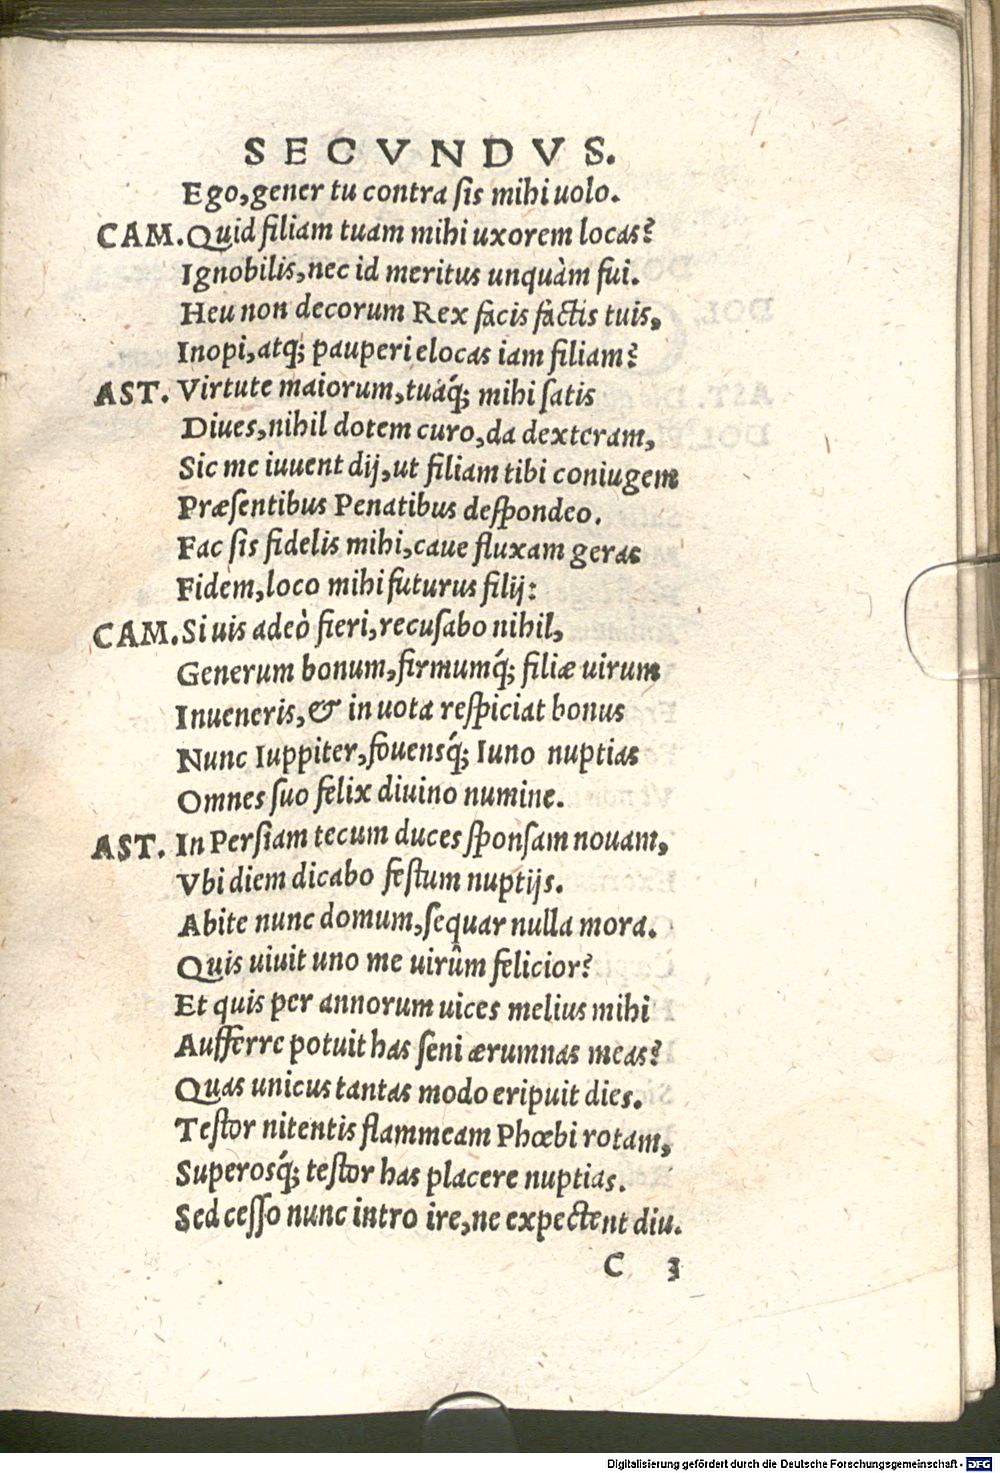 SECVNDVS.
Ego,gener tu contra sis mihi uolo.
CAM. Quid filiam tuam mihi uxorem locas?
Ignobilis,nec id meritus unquàm fui.
Heu non decorum Rex facis factis tuis,
Inopi,atq; pauperi elocas iam filiam?
AST. Virtute maiorum,tuáq́; mihi satis
Diues,nihil dotem curo,da dexteram,
Sic me iuuent dij,ut filiam tibi coniugem
Præsentibus Penatibus despondeo.
Fac sis fidelis mihi,caue fluxam geras
Fidem,loco mihi futurus filij:
CAM. Si uis adeò fieri,recusabo nihil,
Generum bonum,firmumq́; filiæ uirum
Inueneris,& in uota respiciat bonus
Nunc Iuppiter,fouensq́; Iuno nuptias
Omnes suo felix diuino numine.
AST. In Persiam tecum duces sponsam nouam,
Vbi diem dicabo festum nuptijs.
Abite nunc domum,sequar nulla mora.
Quis uiuit uno me uirûm felicior?
Et quis per annorum uices melius mihi
Aufferre potuit has seni ærumnas meas?
Quas unicus tantas modo eripuit dies.
Testor nitentis flammeam Phœbi rotam,
Superosq́; testor has placere nuptias.
Sed cesso nunc intro ire,ne expectent diu.
C 3
Digitalisierung gefördert durch die Deutsche Forschungsgemeinschaft - DFG